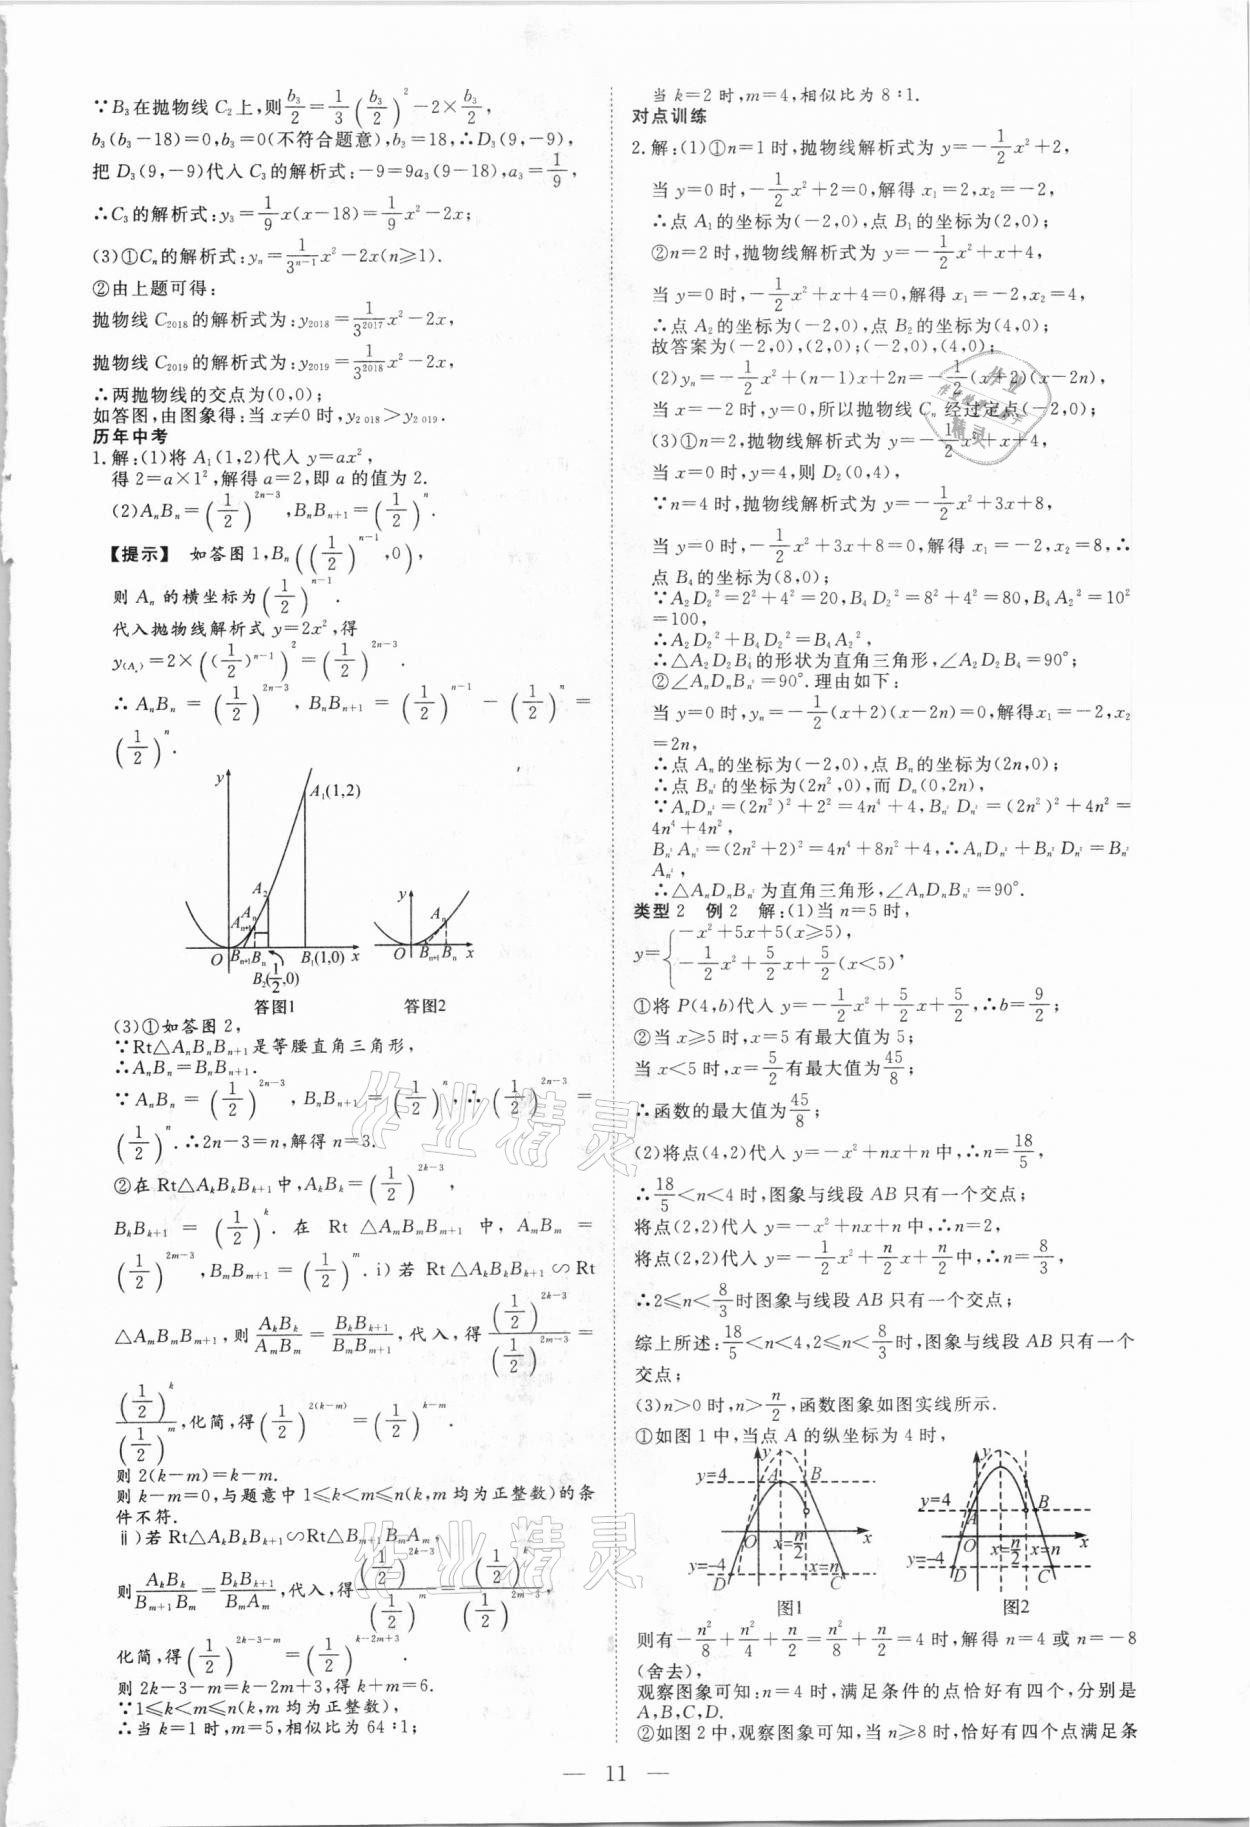 ∵B₃在抛物线 C₂上,则b₃/2=1/3(b₃/2)²-2×b₃/2,
b₃(b₃-18)=0,b₃=0(不符合题意),b₃=18,∴D₃(9,-9),
把 D₃(9,-9)代入 C₃的解析式:-9=9a₃(9-18),a₃=1/9,
∴C₃的解析式:y₃=1/9x(x-18)=1/9x²-2x;
(3)①Cₙ的解析式:yₙ=1/3ⁿ⁻¹x²-2x(n≥1).
②由上题可得:
抛物线 C₂₀₁₈的解析式为:y₂₀₁₈=1/3²⁰¹⁷x²-2x,
抛物线 C₂₀₁₉的解析式为:y₂₀₁₉=1/3²⁰¹⁸x²-2x,
∴两抛物线的交点为(0,0);
如答图,由图象得:当 x≠0 时,y₂₀₁₈>y₂₀₁₉.
历年中考
1.解:(1)将 A₁(1,2)代入 y=ax²,
得 2=a×1²,解得 a=2,即 a 的值为 2.
(2)AₙBₙ=(1/2)²ⁿ⁻³,BₙBₙ₊₁=(1/2)ⁿ.
【提示】 如答图 1,Bₙ((1/2)ⁿ⁻¹,0),
则 Aₙ 的横坐标为(1/2)ⁿ⁻¹.
代入抛物线解析式 y=2x²,得
y(Aₙ)=2×((1/2)ⁿ⁻¹)²=(1/2)²ⁿ⁻³.
∴AₙBₙ=(1/2)²ⁿ⁻³,BₙBₙ₊₁=(1/2)ⁿ⁻¹-(1/2)ⁿ=
(1/2)ⁿ.
y
A₁(1,2)
A₂
Aₙ
Aₙ₊₁
O Bₙ₊₁Bₙ B₁(1,0) x
B₂(1/2,0)
答图1
y
Aₙ
O Bₙ₊₁ Bₙ x
答图2
(3)①如答图 2,
∵Rt△AₙBₙBₙ₊₁是等腰直角三角形,
∴AₙBₙ=BₙBₙ₊₁.
∵AₙBₙ=(1/2)²ⁿ⁻³,BₙBₙ₊₁=(1/2)ⁿ,∴(1/2)²ⁿ⁻³=
(1/2)ⁿ.∴2n-3=n,解得 n=3.
②在 Rt△AₖBₖBₖ₊₁中,AₖBₖ=(1/2)²ᵏ⁻³,
BₖBₖ₊₁=(1/2)ᵏ.在 Rt△AₘBₘBₘ₊₁中,AₘBₘ=
(1/2)²ᵐ⁻³,BₘBₘ₊₁=(1/2)ᵐ.ⅰ)若 Rt△AₖBₖBₖ₊₁∽Rt
△AₘBₘBₘ₊₁,则AₖBₖ/AₘBₘ=BₖBₖ₊₁/BₘBₘ₊₁,代入,得(1/2)²ᵏ⁻³/(1/2)²ᵐ⁻³=
(1/2)ᵏ/(1/2)ᵐ,化简,得(1/2)²⁽ᵏ⁻ᵐ⁾=(1/2)ᵏ⁻ᵐ.
则 2(k-m)=k-m.
则 k-m=0,与题意中 1≤k<m≤n(k,m 均为正整数)的条
件不符.
ⅱ)若 Rt△AₖBₖBₖ₊₁∽Rt△Bₘ₊₁BₘAₘ,
则AₖBₖ/Bₘ₊₁Bₘ=BₖBₖ₊₁/BₘAₘ,代入,得(1/2)²ᵏ⁻³/(1/2)ᵐ=(1/2)ᵏ/(1/2)²ᵐ⁻³,
化简,得(1/2)²ᵏ⁻³⁻ᵐ=(1/2)ᵏ⁻²ᵐ⁺³.
则 2k-3-m=k-2m+3,得 k+m=6.
∵1≤k<m≤n(k,m 均为正整数),
∴当 k=1 时,m=5,相似比为 64∶1;
当 k=2 时,m=4,相似比为 8∶1.
对点训练
2.解:(1)①n=1 时,抛物线解析式为 y=-1/2x²+2,
当 y=0 时,-1/2x²+2=0,解得 x₁=2,x₂=-2,
∴点 A₁的坐标为(-2,0),点 B₁的坐标为(2,0);
②n=2 时,抛物线解析式为 y=-1/2x²+x+4,
当 y=0 时,-1/2x²+x+4=0,解得 x₁=-2,x₂=4,
∴点 A₂的坐标为(-2,0),点 B₂的坐标为(4,0);
故答案为(-2,0),(2,0);(-2,0),(4,0);
(2)yₙ=-1/2x²+(n-1)x+2n=-1/2(x+2)(x-2n),
当 x=-2 时,y=0,所以抛物线 Cₙ 经过定点(-2,0);
(3)①n=2,抛物线解析式为 y=-1/2x²+x+4,
当 x=0 时,y=4,则 D₂(0,4),
∵n=4 时,抛物线解析式为 y=-1/2x²+3x+8,
当 y=0 时,-1/2x²+3x+8=0,解得 x₁=-2,x₂=8,∴
点 B₄的坐标为(8,0);
∵A₂D₂²=2²+4²=20,B₄D₂²=8²+4²=80,B₄A₂²=10²
=100,
∴A₂D₂²+B₄D₂²=B₄A₂²,
∴△A₂D₂B₄的形状为直角三角形,∠A₂D₂B₄=90°;
②∠AₙDₙBₙ²=90°.理由如下:
当 y=0 时,yₙ=-1/2(x+2)(x-2n)=0,解得x₁=-2,x₂
=2n,
∴点 Aₙ的坐标为(-2,0),点 Bₙ的坐标为(2n,0);
∴点 Bₙ²的坐标为(2n²,0),而 Dₙ(0,2n),
∵AₙDₙ²=(2n²)²+2²=4n⁴+4,Bₙ²Dₙ²=(2n²)²+4n²=
4n⁴+4n²,
Bₙ²Aₙ²=(2n²+2)²=4n⁴+8n²+4,∴AₙDₙ²+Bₙ²Dₙ²=Bₙ²
Aₙ²,
∴△AₙDₙBₙ²为直角三角形,∠AₙDₙBₙ²=90°.
类型 2 例 2 解:(1)当 n=5 时,
y={-x²+5x+5(x≥5),
-1/2x²+5/2x+5/2(x<5),
①将 P(4,b)代入 y=-1/2x²+5/2x+5/2,∴b=9/2;
②当 x≥5 时,x=5 有最大值为 5;
当 x<5 时,x=5/2有最大值为45/8;
∴函数的最大值为45/8;
(2)将点(4,2)代入 y=-x²+nx+n 中,∴n=18/5,
∴18/5<n<4 时,图象与线段 AB 只有一个交点;
将点(2,2)代入 y=-x²+nx+n 中,∴n=2,
将点(2,2)代入 y=-1/2x²+n/2x+n/2中,∴n=8/3,
∴2≤n<8/3时图象与线段 AB 只有一个交点;
综上所述:18/5<n<4,2≤n<8/3时,图象与线段 AB 只有一个
交点;
(3)n>0 时,n>n/2,函数图象如图实线所示.
①如图 1 中,当点 A 的纵坐标为 4 时,
y
y=4 A B
O x=n/2 x
y=-4 x=n
D C
图1
y
y=4 A B
O x=n/2 x=n x
y=-4
D C
图2
则有-n²/8+n²/4+n/2=n²/8+n/2=4 时,解得 n=4 或 n=-8
(舍去),
观察图象可知:n=4 时,满足条件的点恰好有四个,分别是
A,B,C,D.
②如图 2 中,观察图象可知,当 n≥8 时,恰好有四个点满足条
— 11 —
作业精灵
作业精灵
作业
精灵